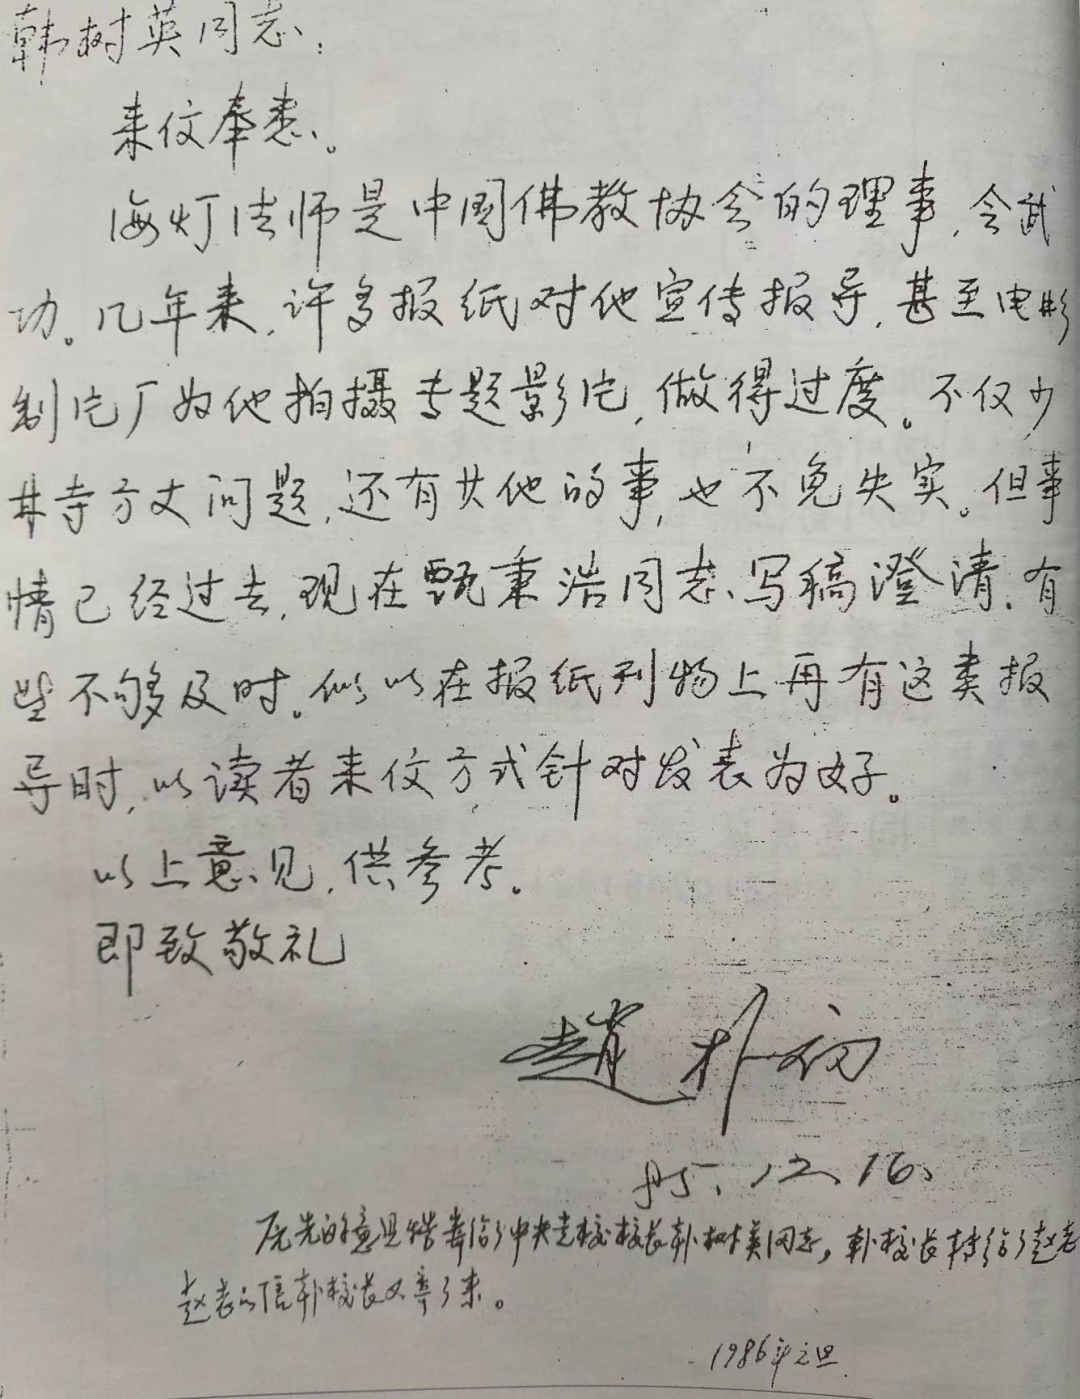 韩树英同志:
来信奉悉。
海灯法师是中国佛教协会的理事,会武
功。几年来,许多报纸对他宣传报导,甚至电影
制片厂为他拍摄专题影片,做得过度。不仅少
林寺方丈问题,还有其他的事,也不免失实。但事
情已经过去,现在甄秉浩同志写稿澄清,有
些不够及时。似以在报纸刊物上再有这类报
导时,以读者来信方式针对发表为好。
以上意见,供参考。
即致敬礼
趙朴初
85.12.16.
给了中央党校校长韩树英同志,韩校长转给了赵老
赵老的信韩校长又寄了来。
1986年元旦